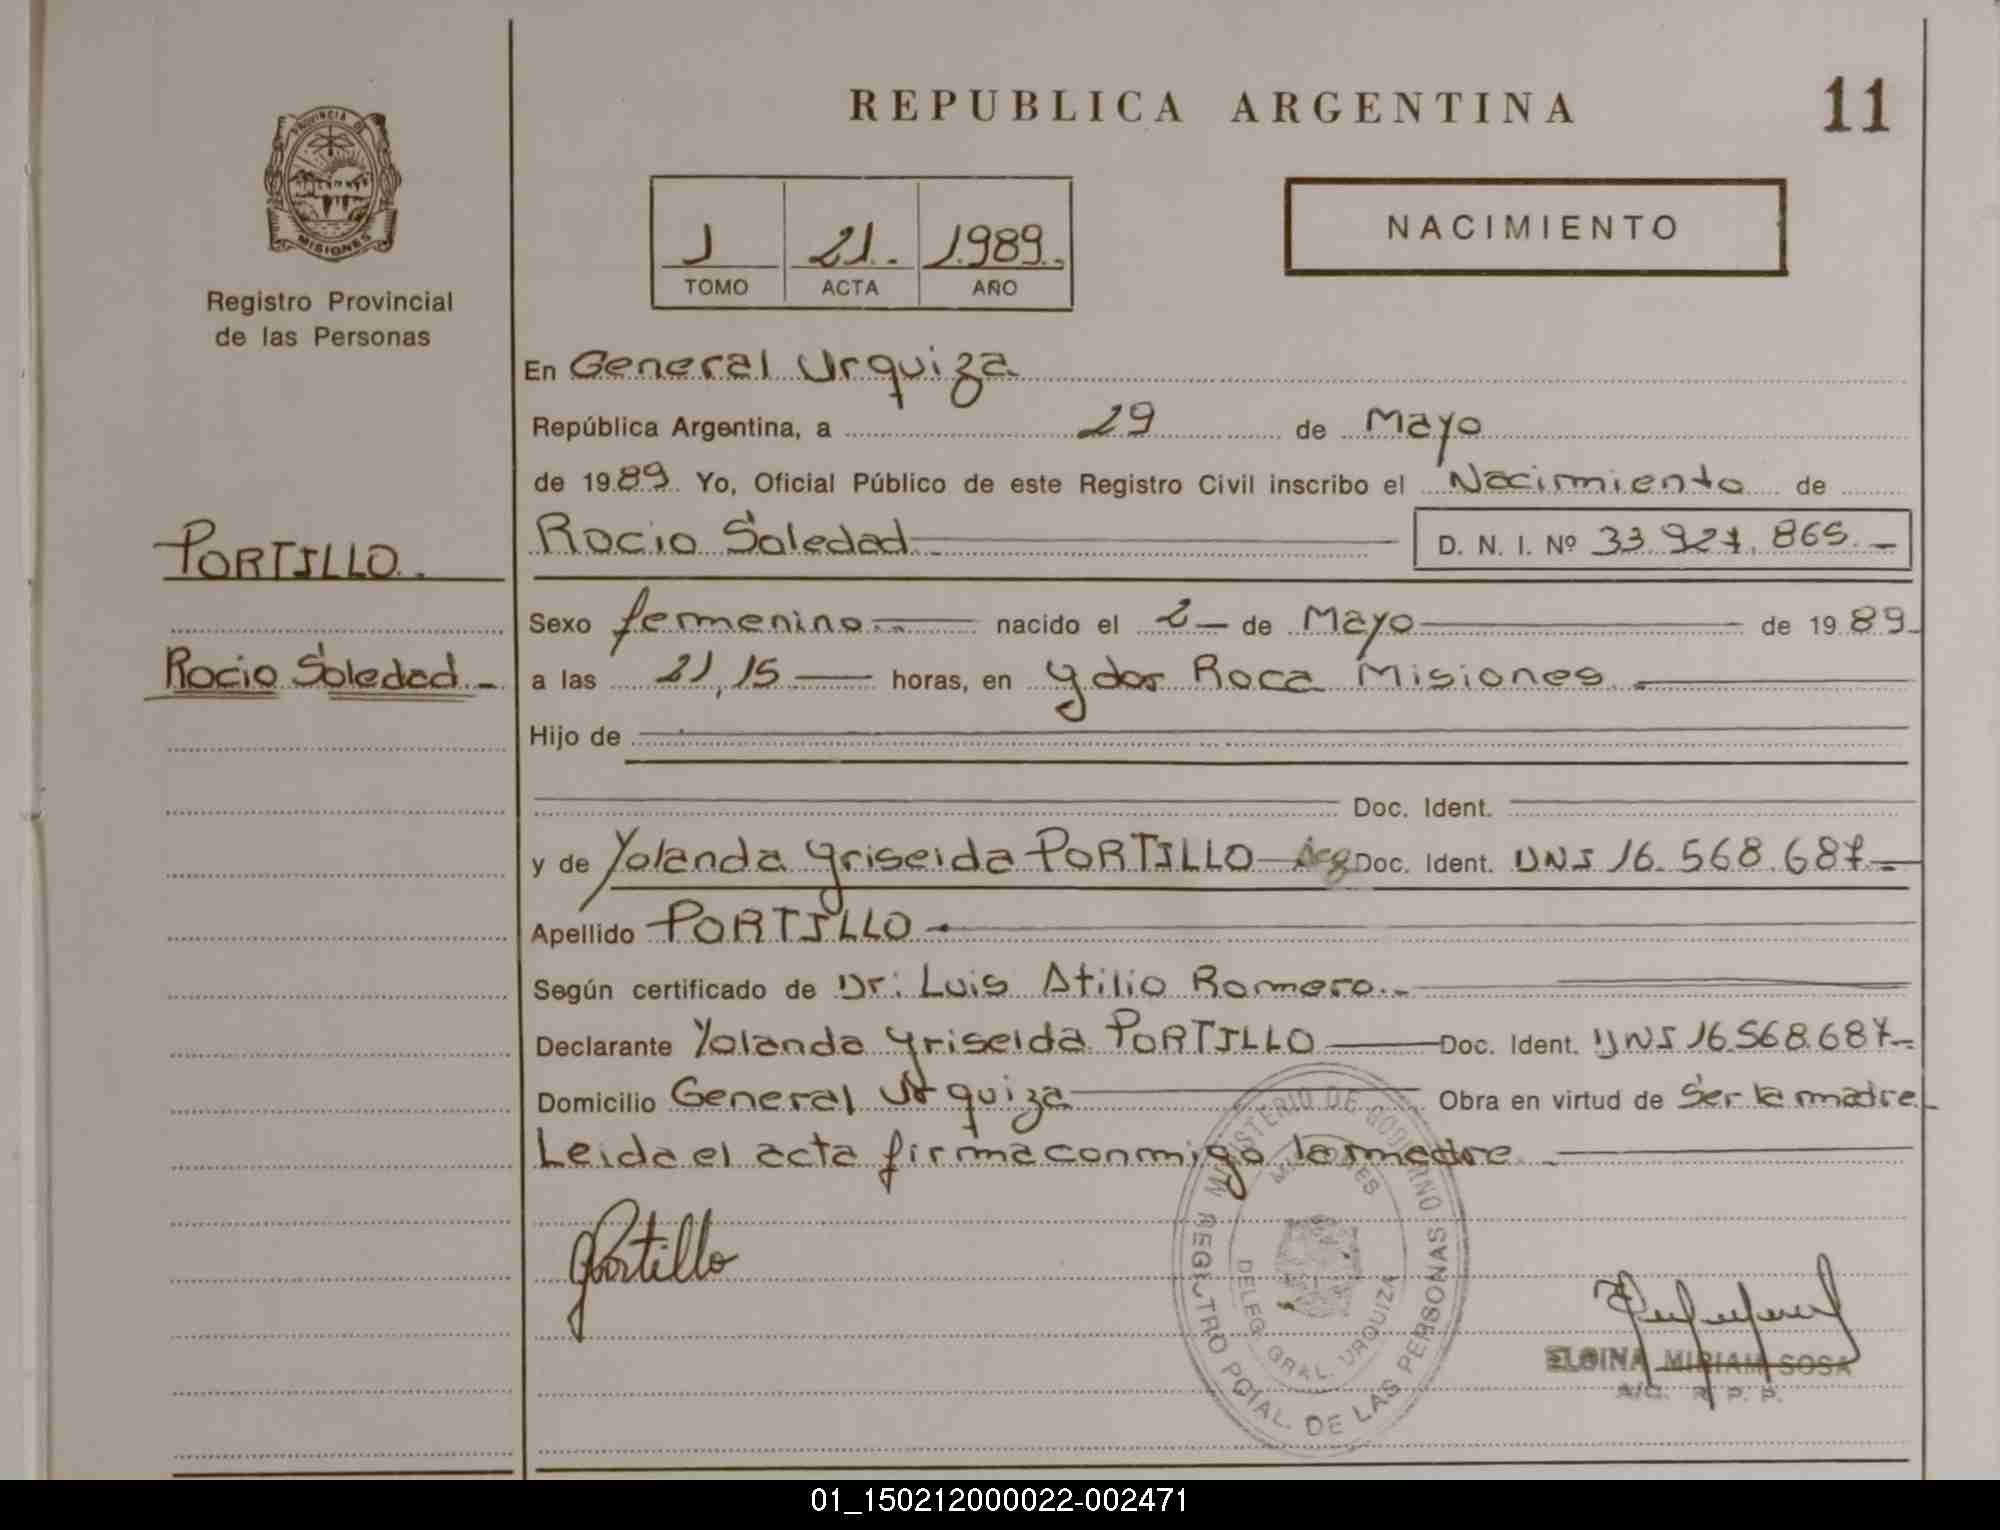 REPUBLICA ARGENTINA
11
PROVINCIA DE
MISIONES
Registro Provincial
de las Personas
1 21. 1989.
TOMO ACTA AÑO
NACIMIENTO
En General Urquiza
República Argentina, a 29 de Mayo
de 1989. Yo, Oficial Público de este Registro Civil inscribo el Nacimiento de
PORTILLO.
Rocio Soledad D. N. I. Nº 33.927.865.-
Sexo femenino nacido el 2 de Mayo de 1989
Rocio Soledad.-
a las 21,15 horas, en Gdor Roca Misiones.
Hijo de
Doc. Ident.
y de Yolanda Griselda PORTILLO Arg Doc. Ident. DNI 16.568.687
Apellido PORTILLO
Según certificado de Dr: Luis Atilio Romero.-
Declarante Yolanda Griselda PORTILLO Doc. Ident. DNI 16.568.687-
Domicilio General Urquiza Obra en virtud de Ser la madre
Leida el acta firma conmigo la madre.
GPortillo
MINISTERIO DE GOBIERNO
MISIONES
REGISTRO PCIAL. DE LAS PERSONAS
DELEG. GRAL. URQUIZA
ELOINA MIRIAM SOSA
A/C. R. P. P.
01_150212000022-002471